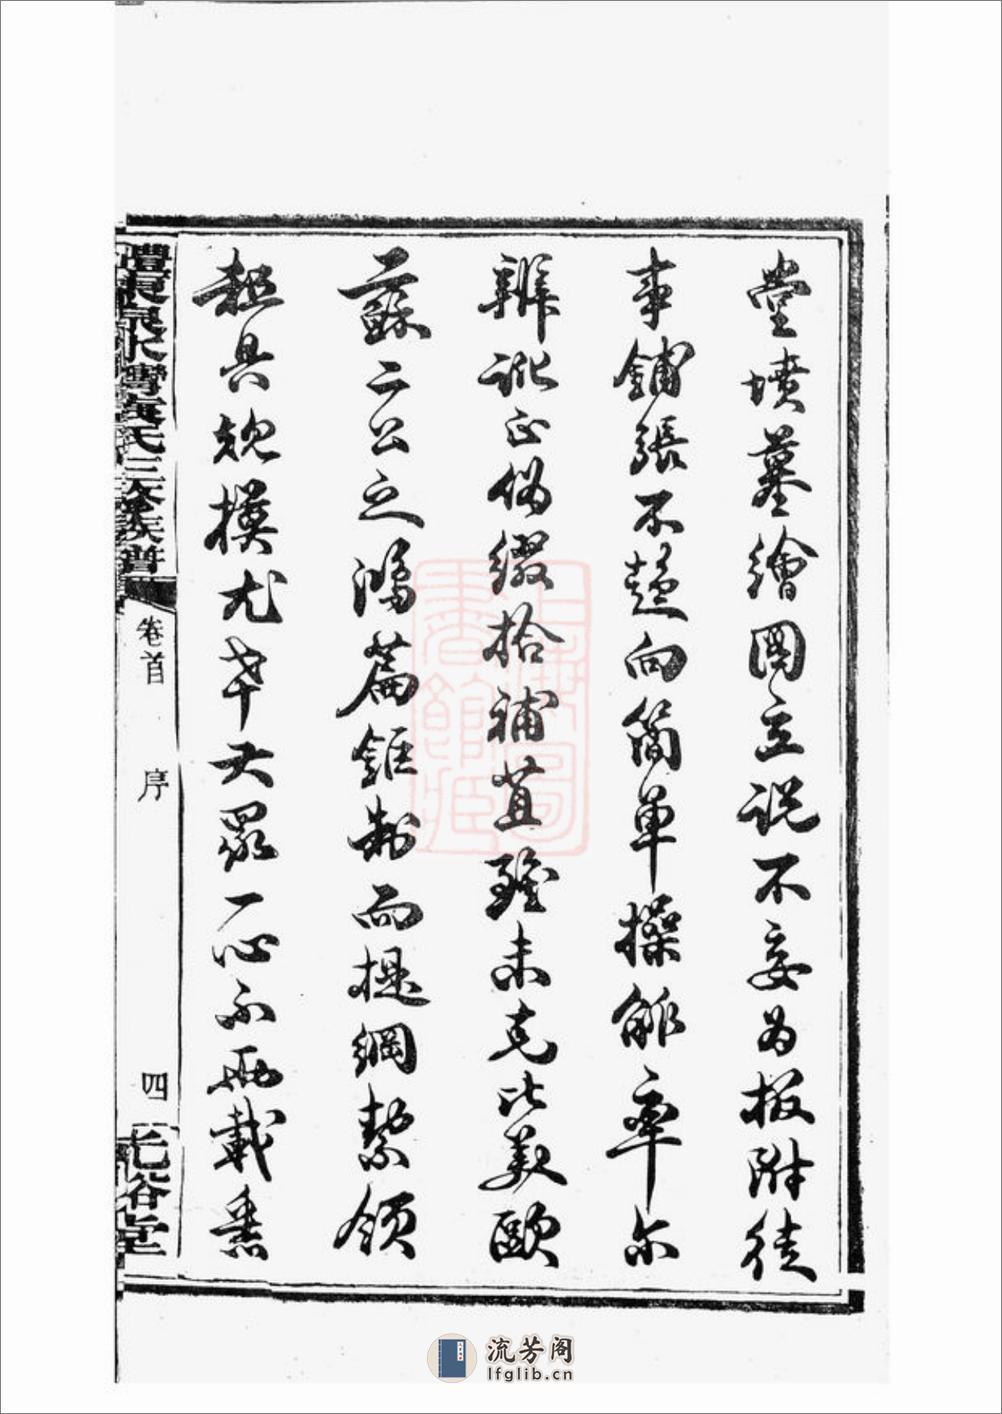 堂墳墓繪圖立說不妄為扳附徒
事鋪張不趨向簡單操觚率爾
辨訛正偽綴拾補苴雖未克比美歐
蘇二公之鴻篇鉅製而提綱絜領
粗具規模尤幸大眾一心不兩載悉
泉水灣
氏三修族譜
卷首
序
四
上海圖
書館藏
流芳阁
lfglib.cn